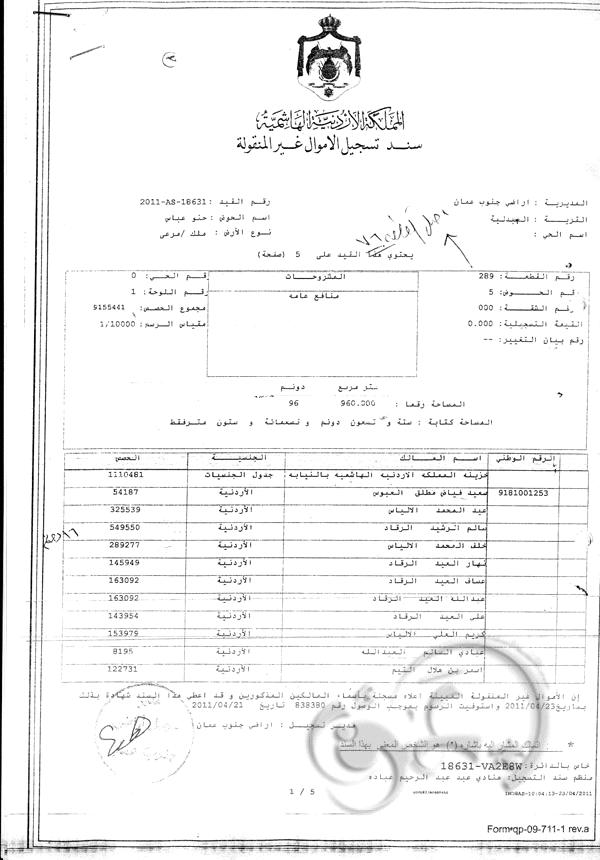 المملكة الأردنية الهاشمية
سند تسجيل الاموال غير المنقولة
المديرية : اراضي جنوب عمان
رقم القيد : 2011-AS-18631
القرية : العبدلية
اسم الحوض : حنو عباس
اسم الحي :
نوع الأرض : ملك /مرعى
يحتوي هذا القيد على 5 (صفحة)
رقم القطعة : 289
المشروحات
رقم الحي : 0
رقم الحوض : 5
منافع عامه
رقم اللوحة : 1
رقم الشقة : 000
مجموع الحصص : 9155441
القيمة التسجيلية : 0.000
مقياس الرسم : 1/10000
رقم بيان التغيير : --
متر مربع دونم
المساحة رقما : 960.000 96
المساحة كتابة : ستة و تسعون دونم و تسعمائة و ستون مترفقط
الرقم الوطني اسم المالك الجنسية الحصص
خزينة المملكه الاردنيه الهاشميه بالنيابه جدول الجنسيات 1110481
9181001253 سعيد فياض مطلق العبوس الأردنية 54187
عيد المحمد الالياس الأردنية 325539
سالم الرشيد الرقاد الأردنية 549550
خلف المحمد الالياس الأردنية 289277
نهار العيد الرقاد الأردنية 145949
عساف العيد الرقاد الأردنية 163092
عبدالله العيد الرقاد الأردنية 163092
على العيد الرقاد الأردنية 143954
كريم العلي الالياس الأردنية 153979
عبادي السالم العبدالله الأردنية 8195
اسمر بن هلال التيم الأردنية 122731
إن الأموال غير المنقولة المبينة اعلاه مسجلة باسماء المالكين المذكورين و قد اعطي هذا السند شهادة بذلك
بتاريخ 2011/04/23 واستوفيت الرسوم بموجب الوصول رقم 838380 تاريخ 2011/04/21
مدير تسجيل : اراضي جنوب عمان
* المالك المشار اليه باشاره (*) هو الشخص المعني بهذا السند
خاص بالدائرة : 18631-VA2E8W
منظم سند التسجيل : هنادي عبد عبد الرحيم عباده
1 / 5
23/04/2011
Form•qp-09-711-1 rev.a